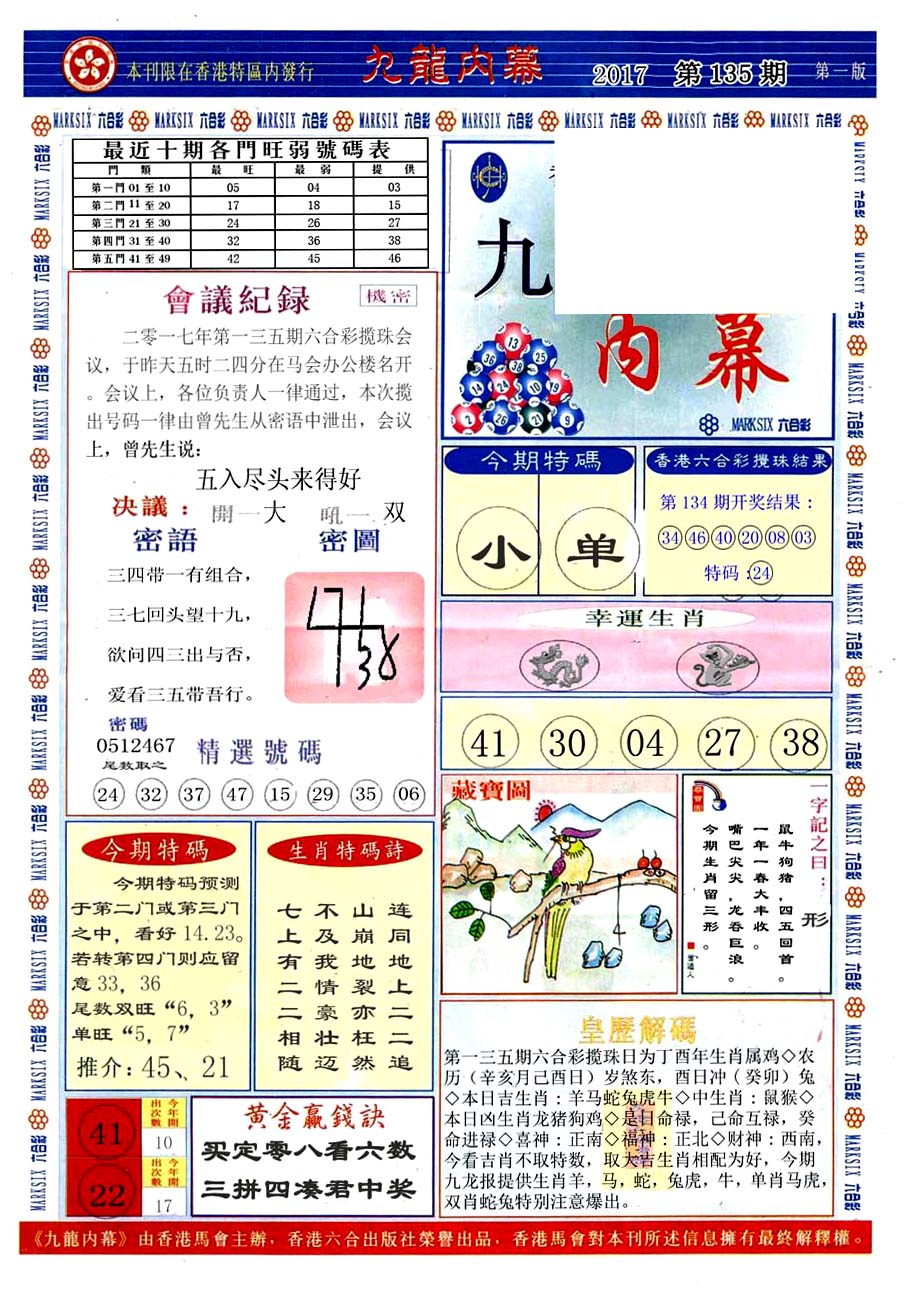 本刊限在香港特區内發行
九龍内幕
2017 第135期
第一版
MARKSIX 六合彩 MARKSIX 六合彩 MARKSIX 六合彩 MARKSIX 六合彩 MARKSIX 六合彩 MARKSIX 六合彩 MARKSIX 六合彩 MARKSIX 六合彩
最近十期各門旺弱號碼表
門類 最旺 最弱 提供
第一門 01 至 10 05 04 03
第二門 11 至 20 17 18 15
第三門 21 至 30 24 26 27
第四門 31 至 40 32 36 38
第五門 41 至 49 42 45 46
會議紀録
機密
二零一七年第一三五期六合彩揽珠会
议，于昨天五时二四分在马会办公楼名开
。会议上，各位负责人一律通过，本次揽
出号码一律由曾先生从密语中泄出，会议
上，曾先生说：
五入尽头来得好
决議：開一大 吼一双
密語
密圖
三四带一有组合，
三七回头望十九，
欲问四三出与否，
爱看三五带吾行。
密碼
0512467
尾数取之
精選號碼
24 32 37 47 15 29 35 06
九
内幕
13
36 25
14 24 10 19
2 26 21 9
MARKSIX 六合彩
今期特碼
小 单
香港六合彩攪珠結果
第134期开奖结果：
34 46 40 20 08 03
特码：24
幸運生肖
41 30 04 27 38
藏寶圖
一字記之曰：形
鼠牛狗猪，四五回首。
一年一春大丰收。
嘴巴尖尖，龙吞巨浪。
今期生肖留三形。
今期特碼
今期特码预测
于第二门或第三门
之中，看好 14.23。
若转第四门则应留
意33，36
尾数双旺“6，3”
单旺“5，7”
推介：45、21
生肖特碼詩
连同地上二二追
山崩地裂亦枉然
不及我情豪壮迈
七上有二二相随
41
出次數 今年開
10
22
出次數 今年開
17
黄金赢錢訣
买定零八看六数
三拼四凑君中奖
皇歷解碼
第一三五期六合彩揽珠日为丁酉年生肖属鸡◇农
历（辛亥月己酉日）岁煞东，酉日冲（癸卯）兔
◇本日吉生肖：羊马蛇兔虎牛◇中生肖：鼠猴◇
本日凶生肖龙猪狗鸡◇是日命禄，己命互禄，癸
命进禄◇喜神：正南◇福神：正北◇财神：西南，
今看吉肖不取特数，取大吉生肖相配为好，今期
九龙报提供生肖羊，马，蛇，兔虎，牛，单肖马虎，
双肖蛇兔特别注意爆出。
《九龍内幕》由香港馬會主辦，香港六合出版社榮譽出品，香港馬會對本刊所述信息擁有最終解釋權。